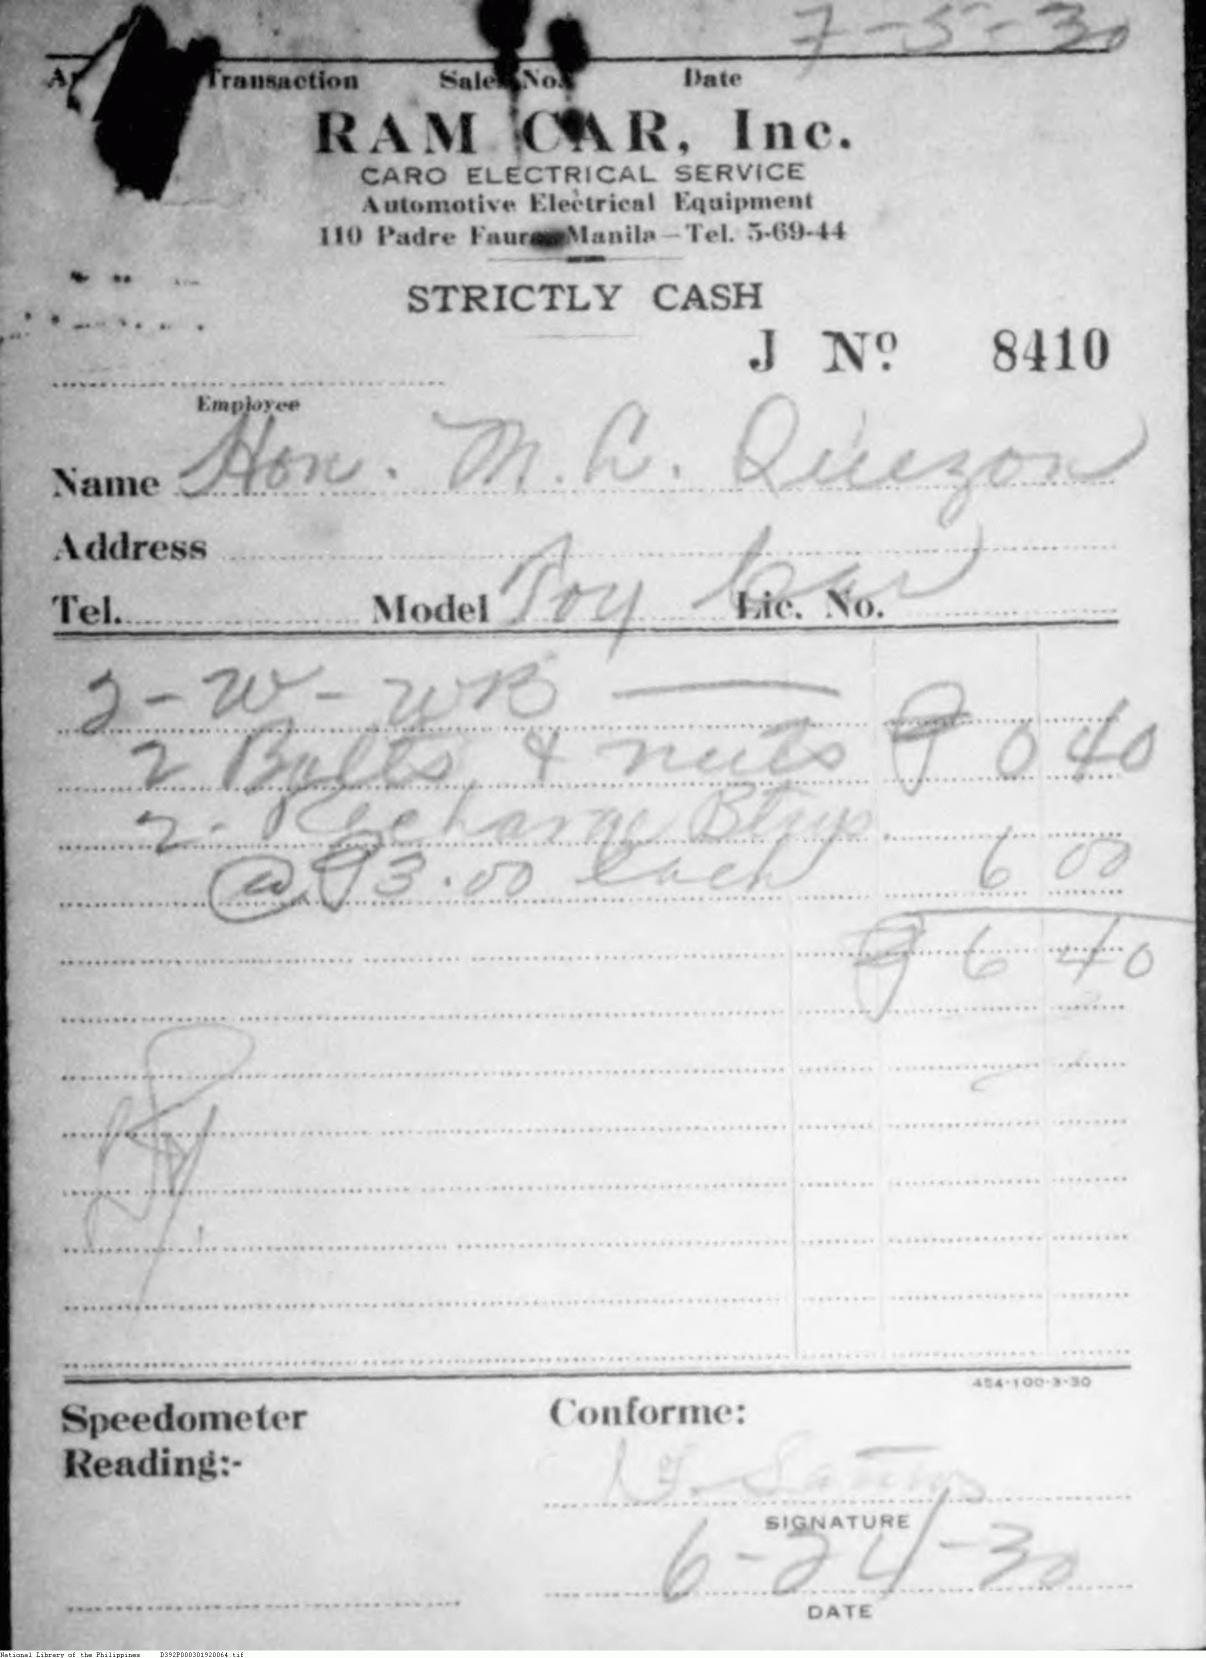 7-5-30
Transaction Sales No. Date
RAM CAR, Inc.
CARO ELECTRICAL SERVICE
Automotive Electrical Equipment
110 Padre Faura Manila—Tel. 5-69-44
STRICTLY CASH
J Nº 8410
Employee
Name Hon. M. L. Quezon
Address
Tel. Model Toy Car Lic. No.
2-W-WB
2 Bolts & nuts ₱ 0 40
2- Recharge Btrys.
@ ₱3.00 each 6 00
₱ 6 40
454-100-3-30
Speedometer
Reading:-
Conforme:
Santos
SIGNATURE
6-24-30
DATE
National Library of the Philippines D392P000301920064.tif